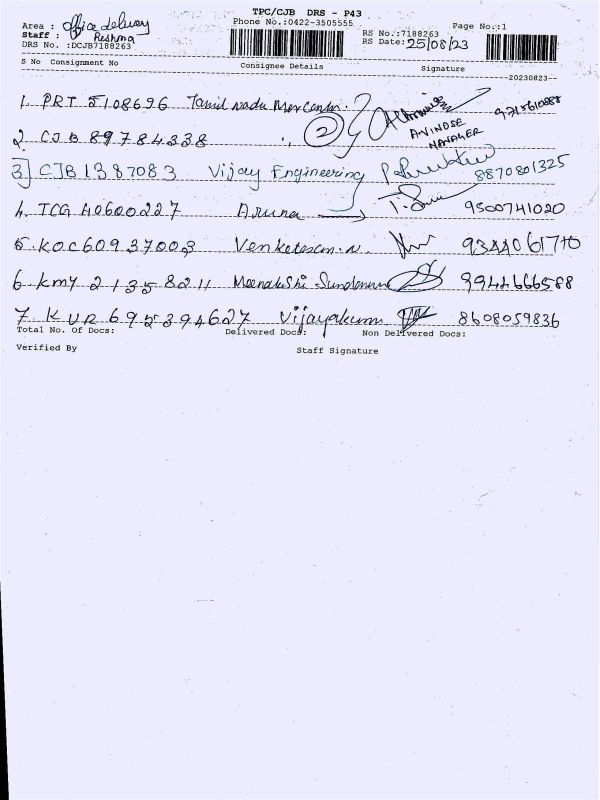 TPC/CJB DRS - P43
Area : Office delivery Phone No.:0422-3505555 Page No.:1
Staff : Reshma RS No.:7188263
DRS No. :DCJB7188263 RS Date: 25/08/23
S No Consignment No Consignee Details Signature
--20230823--
1. PRT 5108696 Tamil nadu Mercantn.
2. CJB 89784338 2 AVINOSE
MANAGER
3] CJB 1387083 Vijay Engineering 8870801325
4. TCG A0600227 Aruna 9500741020
5. KOC6093 7003 Venketesan.N. 9344061770
6. kmy 2135 8211 Meenakshi 9944666588
7. KUR 695394627 Vijayakumar 8608059836
Total No. Of Docs: Delivered Docs: Non Delivered Docs:
Verified By Staff Signature